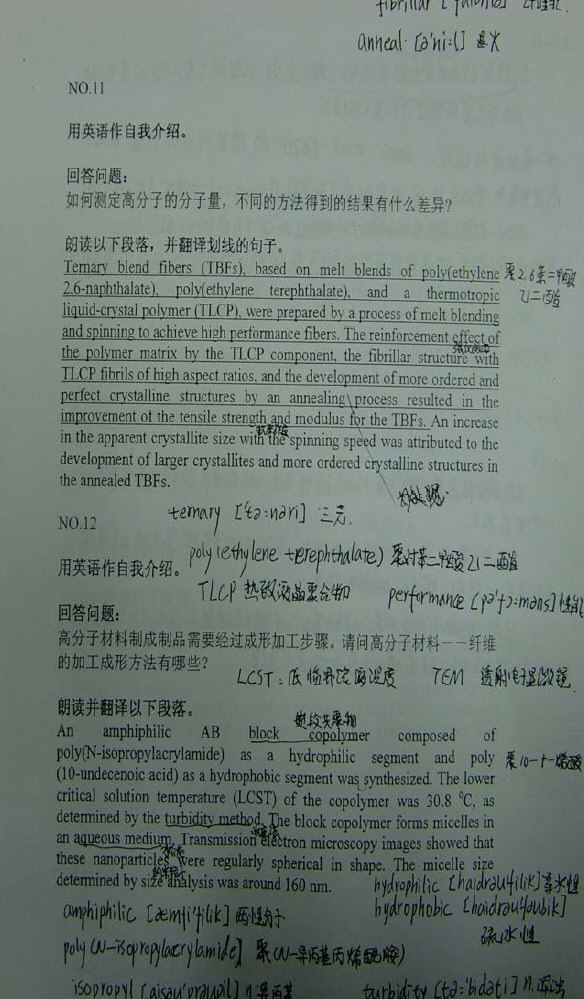 fibrillar
anneal [ə'ni:l] 退火
NO.11
用英语作自我介绍。
回答问题:
如何测定高分子的分子量,不同的方法得到的结果有什么差异?
朗读以下段落,并翻译划线的句子。
Ternary blend fibers (TBFs), based on melt blends of poly(ethylene 聚2,6萘二甲酸
2,6-naphthalate), poly(ethylene terephthalate), and a thermotropic 乙二酯
liquid-crystal polymer (TLCP), were prepared by a process of melt blending
and spinning to achieve high performance fibers. The reinforcement effect of
the polymer matrix by the TLCP component, the fibrillar structure with
TLCP fibrils of high aspect ratios, and the development of more ordered and
perfect crystalline structures by an annealing process resulted in the
improvement of the tensile strength and modulus for the TBFs. An increase
in the apparent crystallite size with the spinning speed was attributed to the
development of larger crystallites and more ordered crystalline structures in
the annealed TBFs.
热处理
ternary [tə:nəri] 三元
NO.12
poly(ethylene terephthalate) 聚对苯二甲酸乙二酯
用英语作自我介绍。
TLCP 热致液晶聚合物 performance [pə'fɔ:məns] 性能
回答问题:
高分子材料制成制品需要经过成形加工步骤。请问高分子材料——纤维
的加工成形方法有哪些?
LCST:低临界溶解温度 TEM 透射电子显微镜
朗读并翻译以下段落。
嵌段共聚物
An amphiphilic AB block copolymer composed of
poly(N-isopropylacrylamide) as a hydrophilic segment and poly 聚10-十一烯酸
(10-undecenoic acid) as a hydrophobic segment was synthesized. The lower
critical solution temperature (LCST) of the copolymer was 30.8 ℃, as
determined by the turbidity method. The block copolymer forms micelles in
an aqueous medium. Transmission electron microscopy images showed that
these nanoparticles were regularly spherical in shape. The micelle size
determined by size analysis was around 160 nm.
hydrophilic [haidrəu'filik] 亲水性
amphiphilic [æmfi'filik] 两性分子
hydrophobic [haidrəu'fəubik]
疏水性
poly(N-isopropylacrylamide) 聚(N-异丙基丙烯酰胺)
isopropyl 异丙基
turbidity [tə:'bidəti] n.